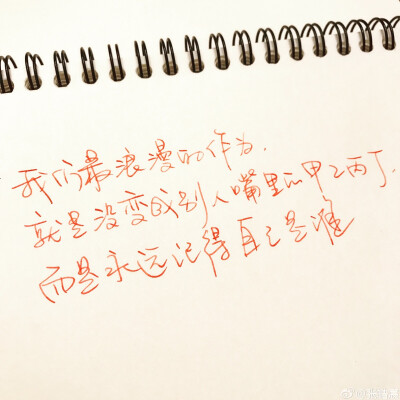 我们最浪漫的作为.
就是没变成别人嘴里的甲乙丙丁.
而是永远记得自己是谁